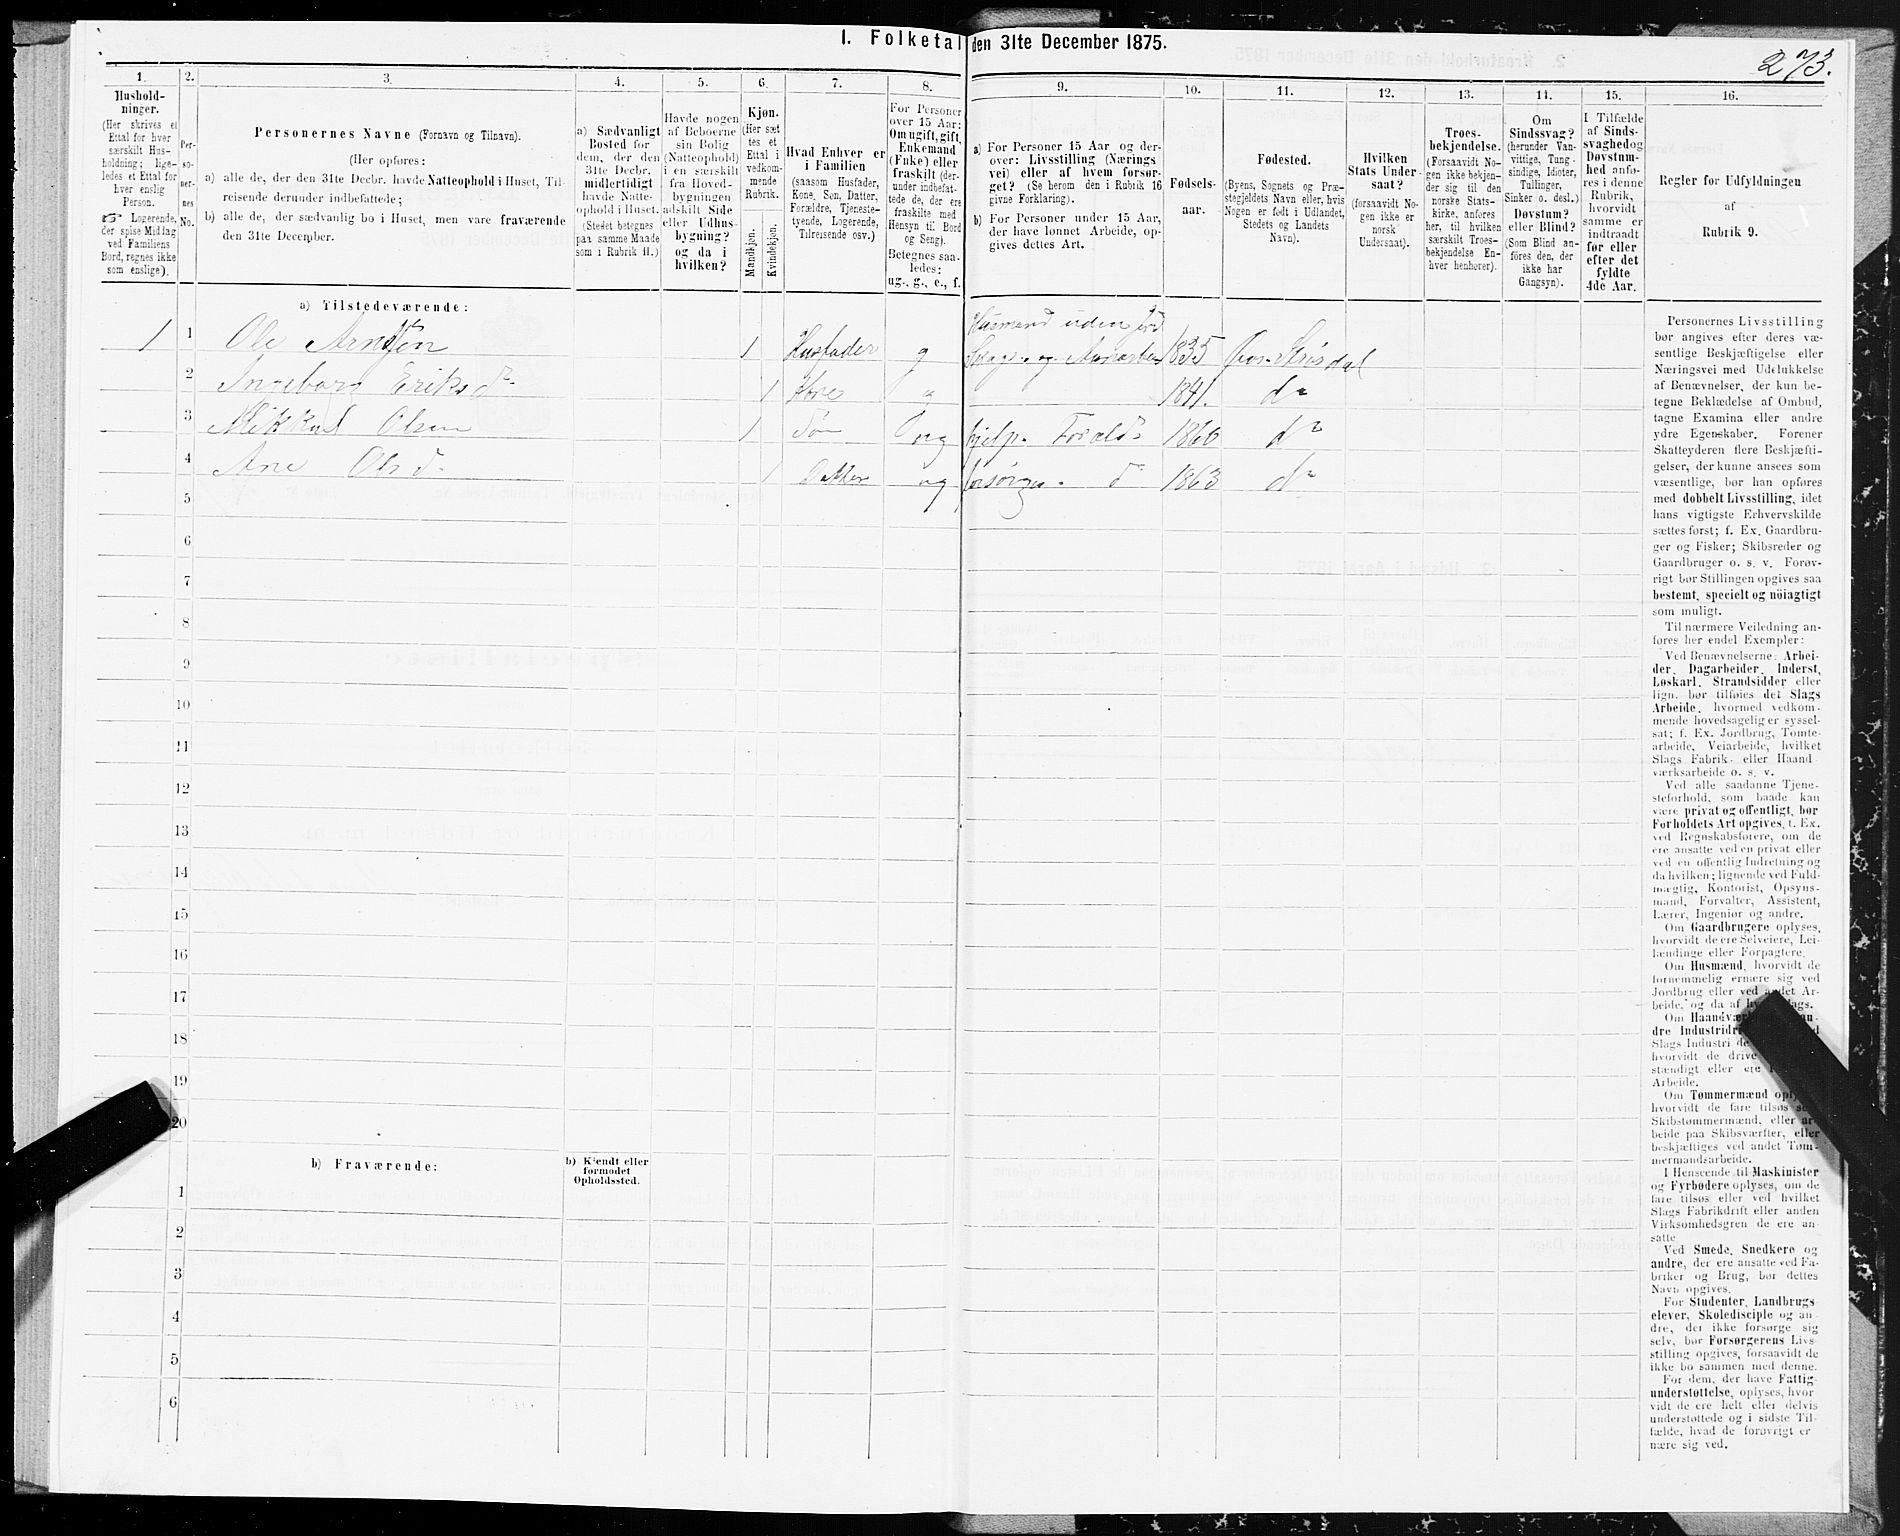 I. Folketal den 31te December 1875.
273.
1. 2. 3. 4. 5. 6. 7. 8. 9. 10. 11. 12. 13. 14. 15. 16.
Hushold-
ninger.
(Her skrives et
Ettal for hver
særskilt Hus-
holdning; lige-
ledes et Ettal for
hver enslig
Person.
☞ Logerende,
der spise Middag
ved Familiens
Bord, regnes ikke
som enslige).
Per-
so-
ner-
nes
No.
Personernes Navne (Fornavn og Tilnavn).
(Her opføres:
a) alle de, der den 31te Decbr. havde Natteophold i Huset, Til-
reisende derunder indbefattede;
b) alle de, der sædvanlig bo i Huset, men vare fraværende
den 31te December.
a) Sædvanligt
Bosted for
dem, der den
31te Decbr.
midlertidigt
havde Natte-
ophold i Huset.
(Stedet betegnes
paa samme Maade
som i Rubrik 11.)
Havde nogen
af Beboerne
sin Bolig
(Natteophold)
i en særskilt
fra Hoved-
bygningen
adskilt Side
eller Udhus-
bygning?
og da i
hvilken?
Kjøn.
(Her sæt
tes et
Ettal i
vedkom-
mende
Rubrik.
Mandkjøn.
Kvindekjøn.
Hvad Enhver er
i Familien
(saasom Husfader,
Kone, Søn, Datter,
Forældre, Tjeneste-
tyende, Logerende,
Tilreisende osv.)
For Personer
over 15 Aar:
Om ugift, gift,
Enkemand
(Enke) eller
fraskilt (der-
under indbefat-
tede de, der ere
fraskilte med
Hensyn til Bord
og Seng).
Betegnes saa-
ledes:
ug., g., e., f.
a) For Personer 15 Aar og der-
over: Livsstilling (Nærings
vei) eller af hvem forsør-
get? (Se herom den i Rubrik 16
givne Forklaring).
b) For Personer under 15 Aar,
der have lønnet Arbeide, op-
gives dettes Art.
Fødsels-
aar.
Fødested.
(Byens, Sognets og Præ-
stegjeldets Navn eller, hvis
Nogen er født i Udlandet,
Stedets og Landets
Navn).
Hvilken
Stats Under-
saat?
(forsaavidt No-
gen ikke er
norsk
Undersaat).
Troes-
bekjendelse.
(Forsaavidt No-
gen ikke bekjen-
der sig til den
norske Stats-
kirke, anføres
her, til hvilken
særskilt Troes-
bekjendelse En-
hver henhører).
Om
Sindssvag?
(herunder Van-
vittige, Tung-
sindige, Idioter,
Tullinger,
Sinker o. desl.)
Døvstum?
eller Blind?
(Som Blind an-
føres den, der
ikke har
Gangsyn).
I Tilfælde
af Sinds-
svaghed og
Døvstum-
hed anfø-
res i denne
Rubrik,
hvorvidt
samme er
indtraadt
før eller
efter det
fyldte
4de Aar.
Regler for Udfyldningen
af
Rubrik 9.
a) Tilstedeværende:
Husmand uden Jord
1 1 Ole Arntsen 1 Husfader g Skogs- og 1835
2 Ingeborg Eriksd. 1 Kone g 1841. do
3 Mikkel Olsen 1 Søn ug hjelp. 1860 do
4 Ane Olsd. 1 Datter ug forsørges d 1863 do
5
6
7
8
9
10
11
12
13
14
15
16
17
18
19
20
b) Fraværende:
b) Kjendt eller
formodet
Opholdssted.
1
2
3
4
5
6
Personernes Livsstilling
bør angives efter deres væ-
sentlige Beskjæftigelse eller
Næringsvei med Udelukkelse
af Benævnelser, der kun be-
tegne Beklædelse af Ombud,
tagne Examina eller andre
ydre Egenskaber. Forener
Skatteyderen flere Beskjæfti-
gelser, der kunne ansees som
væsentlige, bør han opføres
med dobbelt Livsstilling, idet
hans vigtigste Erhvervskilde
sættes først; f. Ex. Gaardbru-
ger og Fisker; Skibsreder og
Gaardbruger o. s. v. Forøv-
rigt bør Stillingen opgives saa
bestemt, specielt og nöiagtigt
som muligt.
Til nærmere Veiledning an-
føres her endel Exempler:
Ved Benævnelserne: Arbei-
der, Dagarbeider, Inderst,
Løskarl, Strandsidder eller
lign. bør tilføies det Slags
Arbeide, hvormed vedkom-
mende hovedsagelig er syssel-
sat; f. Ex. Jordbrug, Tomte-
arbeide, Veiarbeide, hvilket
Slags Fabrik- eller Haand-
værksarbeide o. s. v.
Ved alle saadanne Tjene-
steforhold, som baade kan
være privat og offentligt, bør
Forholdets Art opgives, f. Ex.
ved Regnskabsførere, om de
ere ansatte ved en privat eller
ved en offentlig Indretning og
da hvilken; lignende ved Fuld-
mægtig, Kontorist, Opsyns-
mand, Forvalter, Assistent,
Lærer, Ingeniør og andre.
Om Gaardbrugere oplyses,
hvorvidt de ere Selveiere, Lei-
lændinge eller Forpagtere.
Om Husmænd, hvorvidt de
fornemmelig ernære sig ved
Jordbrug eller ved andet Ar-
beide, og da af
Om
dre
Slags Industri
hvorvidt de drive
stændigt eller ere
Arbeide.
Om Tømmermænd
hvorvidt de fare tilsøs
Skibstømmermænd, eller ar-
beide paa Skibsværfter, eller
beskjæftiges ved andet Tøm-
mermandsarbeide.
I Henseende til Maskinister
og Fyrbødere oplyses, om de
fare tilsøs eller ved hvilket
Slags Fabrikdrift eller anden
Virksomhedsgren de ere an-
satte
Ved Smede, Snedkere og
andre, der ere ansatte ved Fa-
briker og Brug, bør dettes
Navn opgives.
For Studenter, Landbrugs
elever, Skoledisciple og an-
dre, der ikke forsørge sig
selv, bør Forsørgerens Livs-
stilling opgives, forsaavidt de
ikke bo sammen med denne.
For dem, der have Fattig-
understøttelse, oplyses, hvor
vidt de ere helt eller delvis
understøttede og i sidste Til-
fælde, hvad de forøvrigt er
nære sig ved.